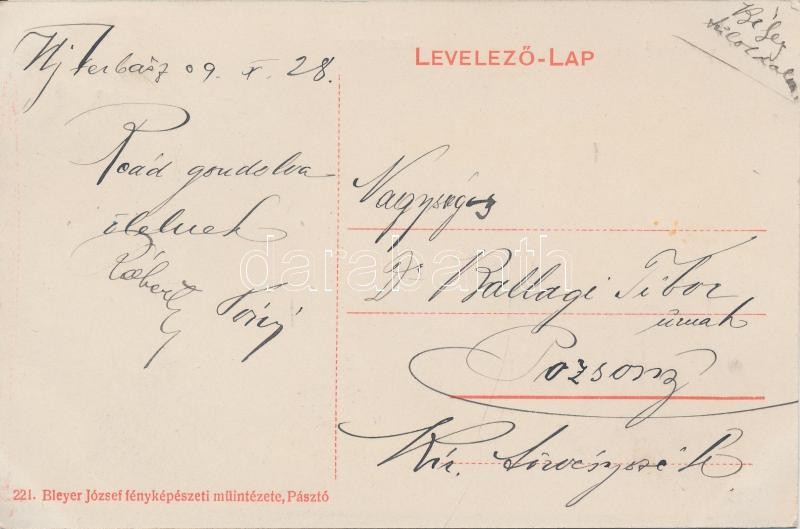 LEVELEZŐ-LAP
Uj Verbász 09. X. 28.
Reád gondolva
ölelnek
Róbert
Nagyságos
Dr Ballagi Tibor
úrnak
Pozsony
Kir. törvényszék
darabanth
221. Bleyer József fényképészeti műintézete, Pásztó